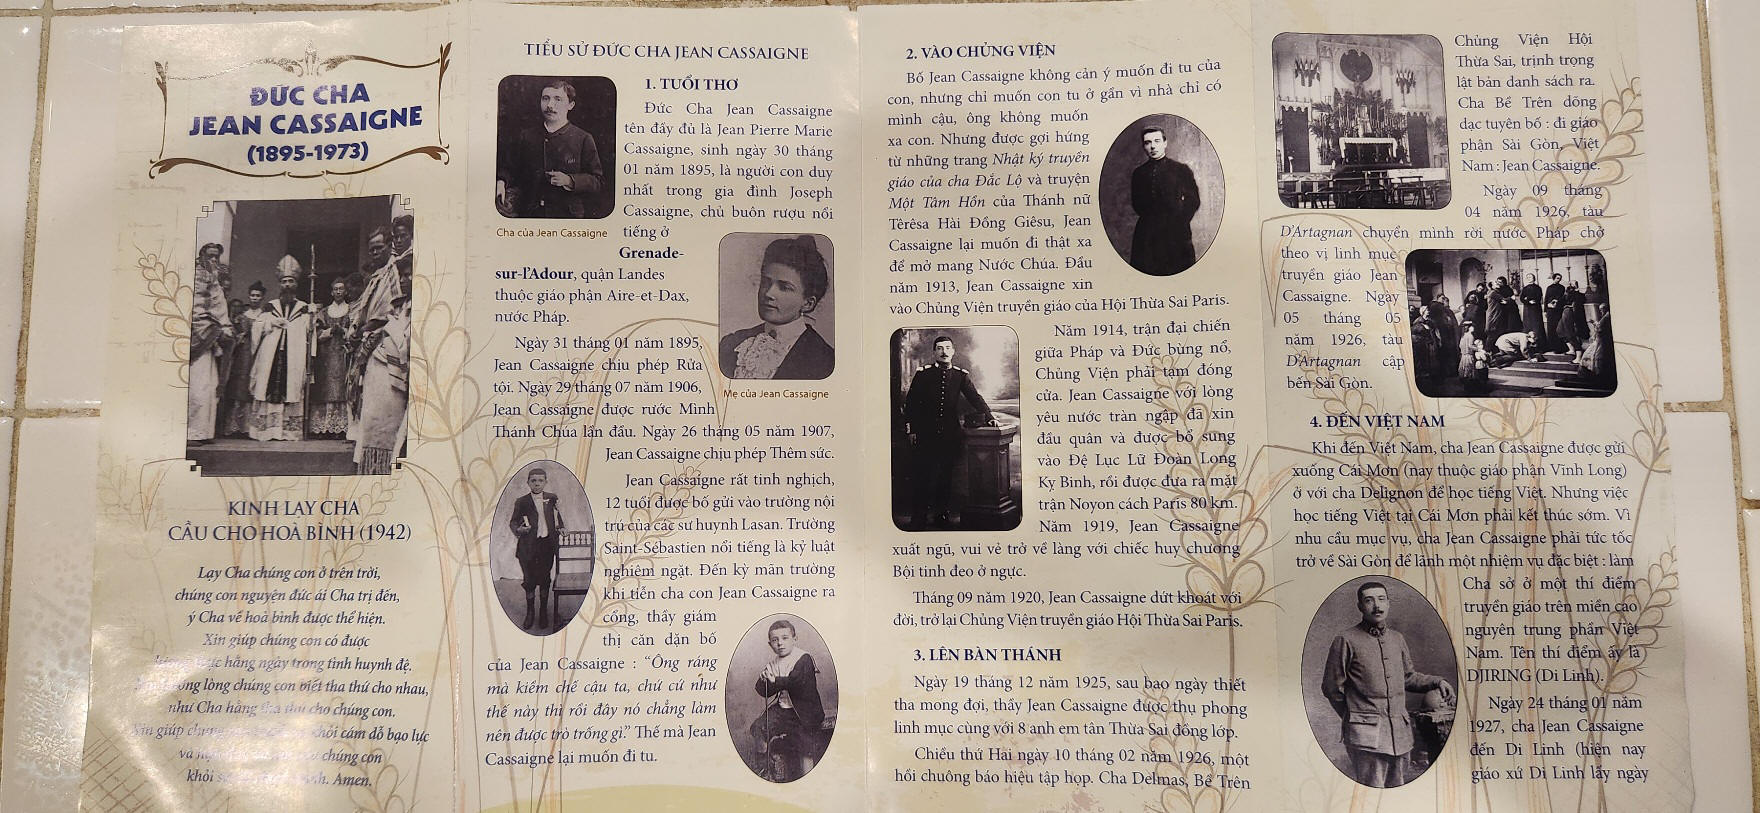 ĐỨC CHA
JEAN CASSAIGNE
(1895-1973)
KINH LẠY CHA
CẦU CHO HOÀ BÌNH (1942)
Lạy Cha chúng con ở trên trời,
chúng con nguyện đức ái Cha trị đến,
ý Cha về hoà bình được thể hiện.
Xin giúp chúng con có được
hằng ngày trong tình huynh đệ.
lòng chúng con biết tha thứ cho nhau,
như Cha hằng tha thứ cho chúng con.
Xin giúp chúng khỏi cám dỗ bạo lực
và chúng con
khỏi Amen.
TIỂU SỬ ĐỨC CHA JEAN CASSAIGNE
1. TUỔI THƠ
Đức Cha Jean Cassaigne
tên đầy đủ là Jean Pierre Marie
Cassaigne, sinh ngày 30 tháng
01 năm 1895, là người con duy
nhất trong gia đình Joseph
Cassaigne, chủ buôn rượu nổi
tiếng ở
Cha của Jean Cassaigne
Grenade-
sur-l'Adour, quận Landes
thuộc giáo phận Aire-et-Dax,
nước Pháp.
Ngày 31 tháng 01 năm 1895,
Jean Cassaigne chịu phép Rửa
tội. Ngày 29 tháng 07 năm 1906,
Mẹ của Jean Cassaigne
Jean Cassaigne được rước Mình
Thánh Chúa lần đầu. Ngày 26 tháng 05 năm 1907,
Jean Cassaigne chịu phép Thêm sức.
Jean Cassaigne rất tinh nghịch,
12 tuổi được bố gửi vào trường nội
trú của các sư huynh Lasan. Trường
Saint-Sébastien nổi tiếng là kỷ luật
nghiêm ngặt. Đến kỳ mãn trường
khi tiễn cha con Jean Cassaigne ra
cổng, thầy giám
thị căn dặn bố
của Jean Cassaigne : “Ông ráng
mà kiềm chế cậu ta, chứ cứ như
thế này thì rồi đây nó chẳng làm
nên được trò trống gì.” Thế mà Jean
Cassaigne lại muốn đi tu.
2. VÀO CHỦNG VIỆN
Bố Jean Cassaigne không cản ý muốn đi tu của
con, nhưng chỉ muốn con tu ở gần vì nhà chỉ có
mình cậu, ông không muốn
xa con. Nhưng được gợi hứng
từ những trang Nhật ký truyền
giáo của cha Đắc Lộ và truyện
Một Tâm Hồn của Thánh nữ
Têrêsa Hài Đồng Giêsu, Jean
Cassaigne lại muốn đi thật xa
để mở mang Nước Chúa. Đầu
năm 1913, Jean Cassaigne xin
vào Chủng Viện truyền giáo của Hội Thừa Sai Paris.
Năm 1914, trận đại chiến
giữa Pháp và Đức bùng nổ,
Chủng Viện phải tạm đóng
cửa. Jean Cassaigne với lòng
yêu nước tràn ngập đã xin
đầu quân và được bổ sung
vào Đệ Lục Lữ Đoàn Long
Kỵ Binh, rồi được đưa ra mặt
trận Noyon cách Paris 80 km.
Năm 1919, Jean Cassaigne
xuất ngũ, vui vẻ trở về làng với chiếc huy chương
Bội tinh đeo ở ngực.
Tháng 09 năm 1920, Jean Cassaigne dứt khoát với
đời, trở lại Chủng Viện truyền giáo Hội Thừa Sai Paris.
3. LÊN BÀN THÁNH
Ngày 19 tháng 12 năm 1925, sau bao ngày thiết
tha mong đợi, thầy Jean Cassaigne được thụ phong
linh mục cùng với 8 anh em tân Thừa Sai đồng lớp.
Chiều thứ Hai ngày 10 tháng 02 năm 1926, một
hồi chuông báo hiệu tập họp. Cha Delmas, Bề Trên
Chủng Viện Hội
Thừa Sai, trịnh trọng
lật bản danh sách ra.
Cha Bề Trên dõng
dạc tuyên bố : đi giáo
phận Sài Gòn, Việt
Nam : Jean Cassaigne.
Ngày 09 tháng
04 năm 1926, tàu
D'Artagnan chuyển mình rời nước Pháp chở
theo vị linh mục
truyền giáo Jean
Cassaigne. Ngày
05 tháng 05
năm 1926, tàu
D'Artagnan cập
bến Sài Gòn.
4. ĐẾN VIỆT NAM
Khi đến Việt Nam, cha Jean Cassaigne được gửi
xuống Cái Mơn (nay thuộc giáo phận Vĩnh Long)
ở với cha Delignon để học tiếng Việt. Nhưng việc
học tiếng Việt tại Cái Mơn phải kết thúc sớm. Vì
nhu cầu mục vụ, cha Jean Cassaigne phải tức tốc
trở về Sài Gòn để lãnh một nhiệm vụ đặc biệt : làm
Cha sở ở một thí điểm
truyền giáo trên miền cao
nguyên trung phần Việt
Nam. Tên thí điểm ấy là
DJIRING (Di Linh).
Ngày 24 tháng 01 năm
1927, cha Jean Cassaigne
đến Di Linh (hiện nay
giáo xứ Di Linh lấy ngày